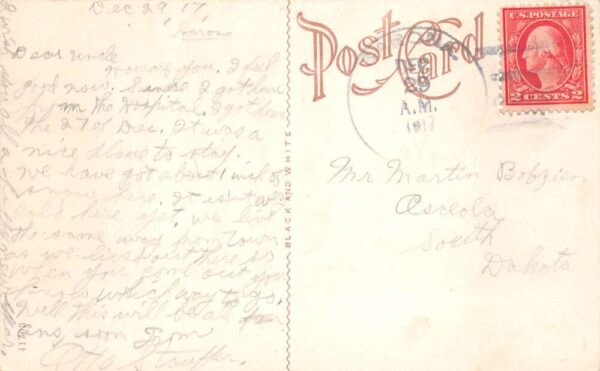 Dec 29 17
Dear uncle
how are you. I feel
good now. Since I got home
from the Hospital. I got home
the 27 of Dec. It was a
nice place to stay.
we have got about 1 inch of
snow here. It isn't
cold here yet. we live
the same way from town
as we lived out there so
when you come out you
know which way to go.
Well this will be all
ans soon From
Otto Stauffer.
new year.
41703
BLACK AND WHITE
Post Card
DEC
29
A.M.
1917
U.S. POSTAGE
2 CENTS 2
Mr Martin Bobzien
Osceola
South
Dakota